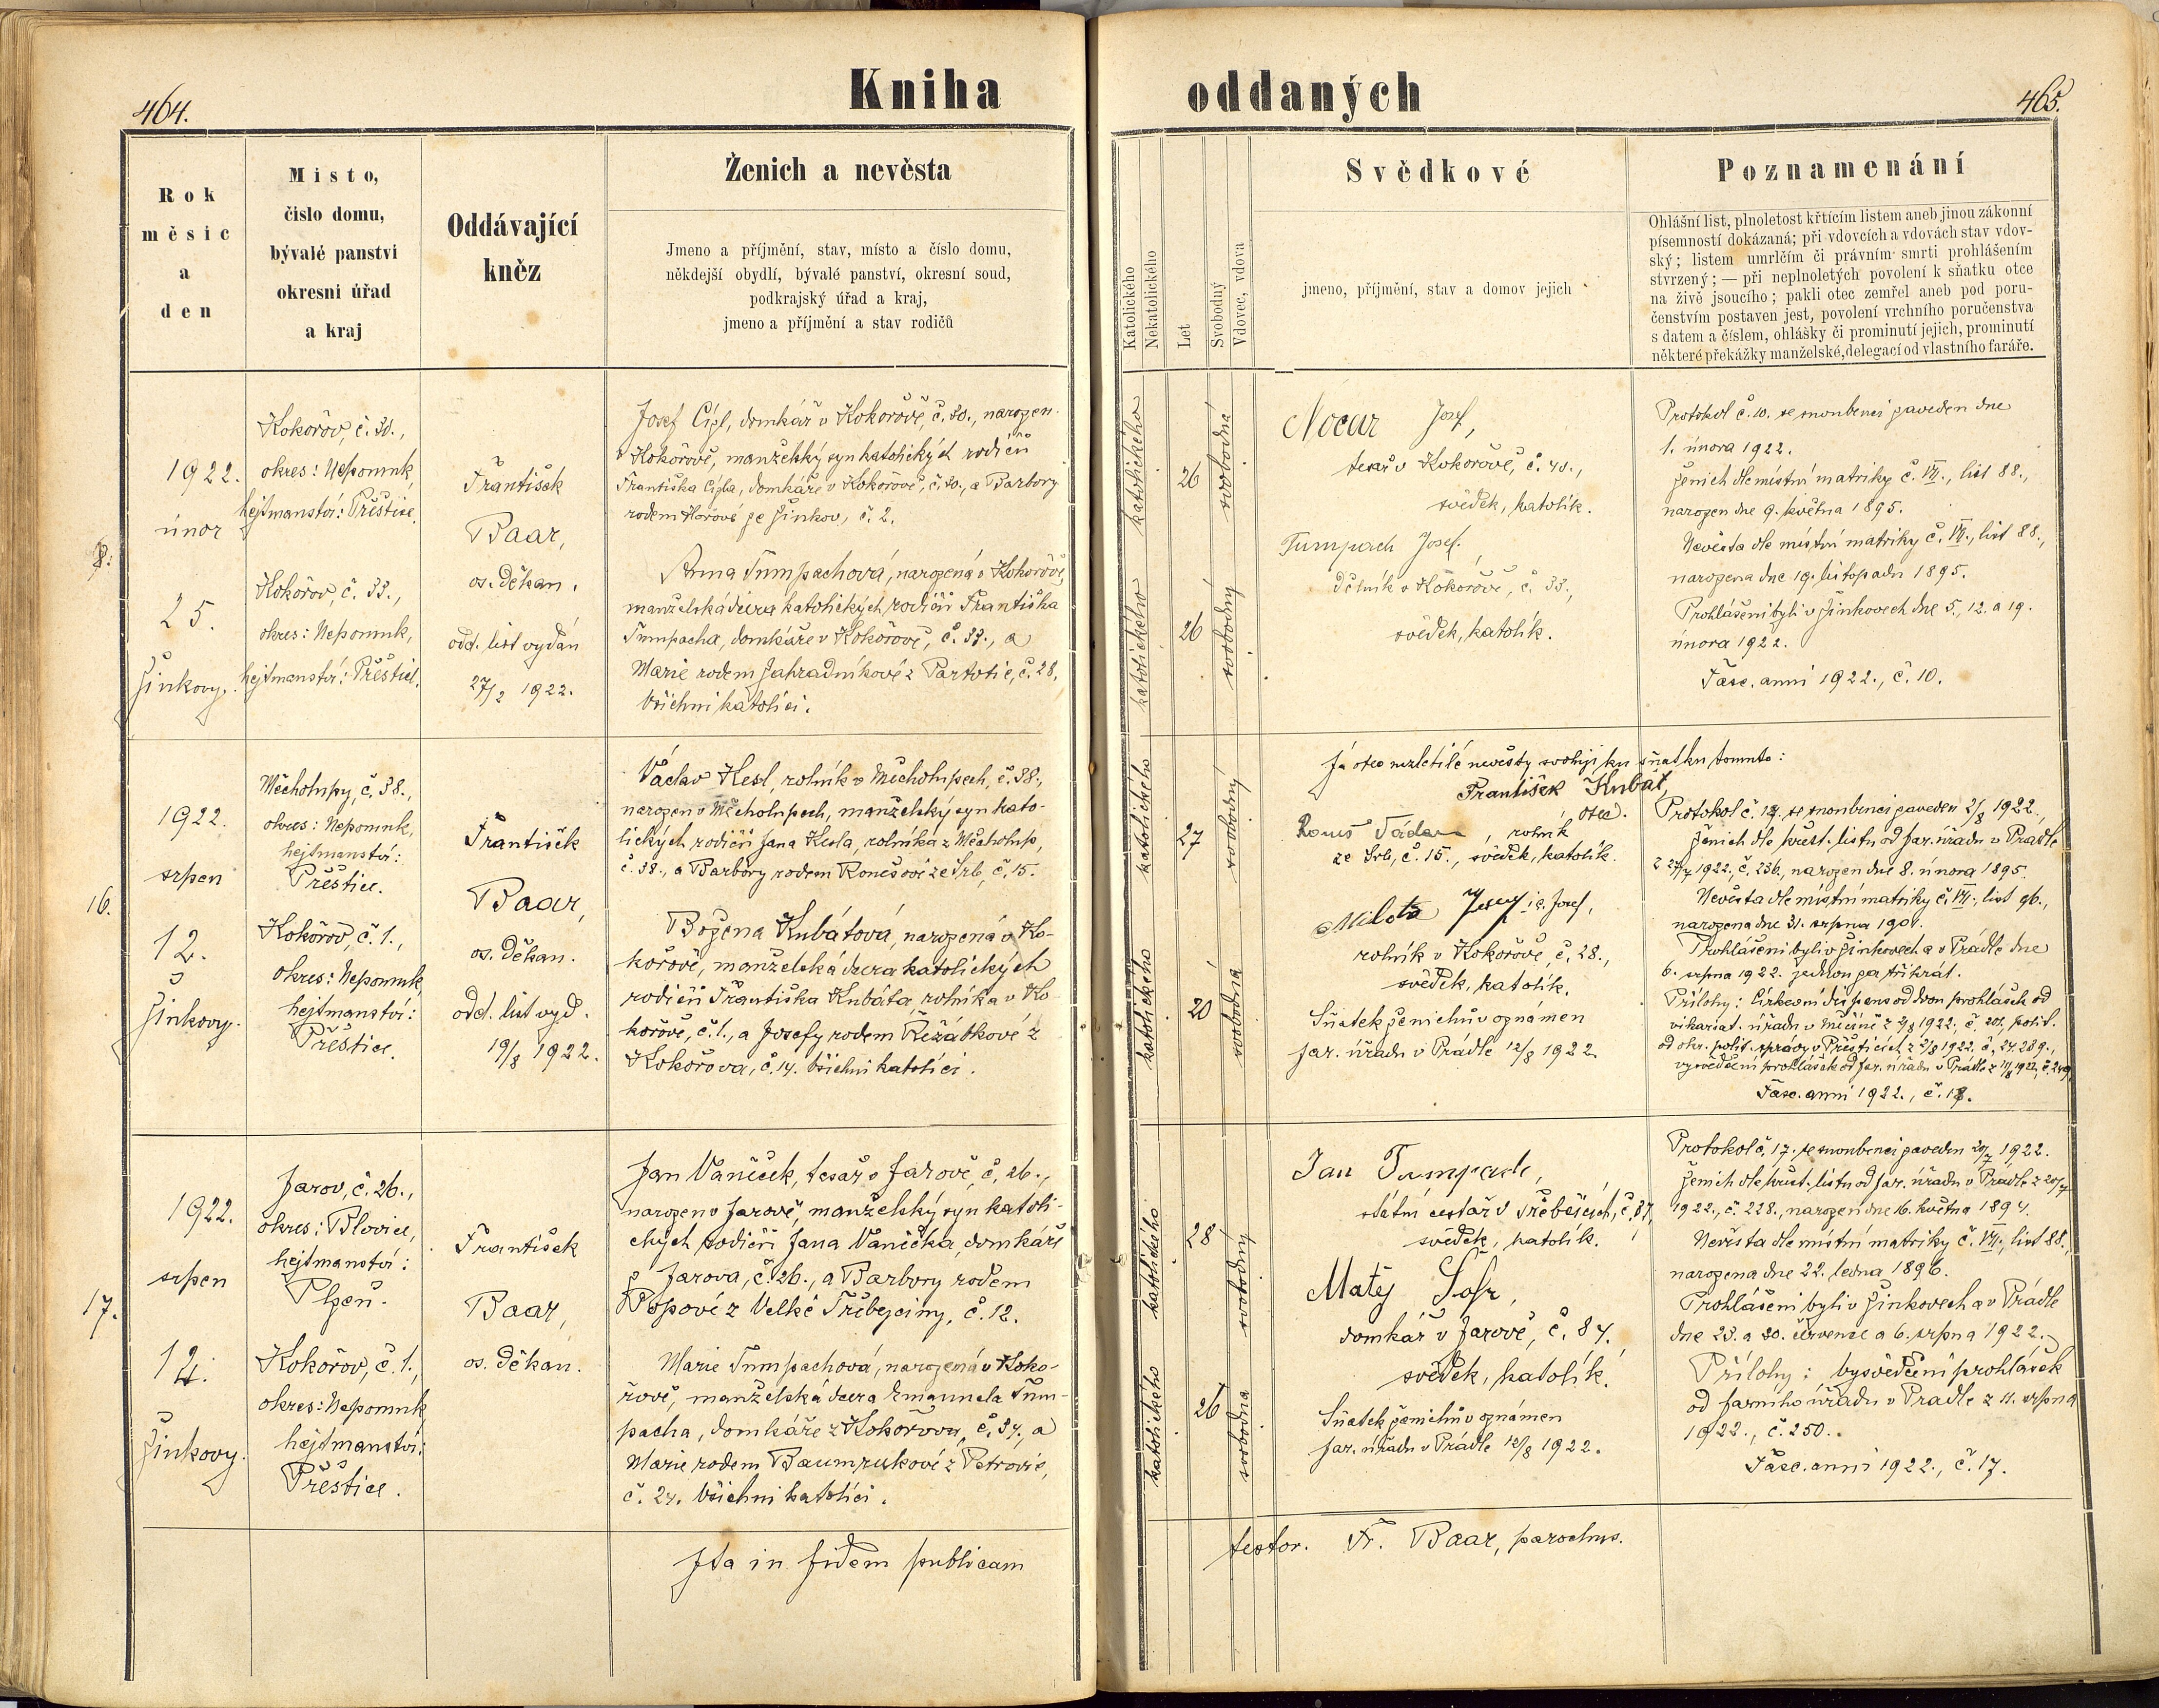 464.
Kniha oddaných
465.
Rok
měsíc
a
den
Místo,
číslo domu,
bývalé panství
okresní úřad
a kraj
Oddávající
kněz
Ženich a nevěsta
Jmeno a příjmění, stav, místo a číslo domu,
někdejší obydlí, bývalé panství, okresní soud,
podkrajský úřad a kraj,
jmeno a příjmění a stav rodičů
Katolického
Nekatolického
Let
Svobodný
Vdovec, vdova
Svědkové
jmeno, příjmění, stav a domov jejich
Poznamenání
Ohlášní list, plnoletost křtícím listem aneb jinou zákonní
písemností dokázaná; při vdovcích a vdovách stav vdov-
ský; listem umrlčím či právním smrti prohlášením
stvrzený; — při neplnoletých povolení k sňatku otce
na živě jsoucího; pakli otec zemřel aneb pod poru-
čenstvím postaven jest, povolení vrchního poručenstva
s datem a číslem, ohlášky či prominutí jejich, prominutí
některé překážky manželské, delegací od vlastního faráře.
1922.
únor
25.
Žinkovy.
Kokořov, č. 30.,
okres: Nepomuk,
hejtmanství: Přeštice.
Kokořov, č. 33.,
okres: Nepomuk,
hejtmanství: Přeštice.
František
Baar,
os. děkan.
odd. list vydán
27/2 1922.
Josef Cígl, domkář v Kokořově, č. 30., narozen
v Kokořově, manželský syn katolických rodičů
Františka Cígla, domkáře v Kokořově, č. 30., a Barbory
rodem Hořové ze Žinkov, č. 2.
Anna Tumpachová, narozená v Kokořově,
manželská dcera katolických rodičů Františka
Tumpacha, domkáře v Kokořově, č. 33., a
Marie rodem Zahradníkové z Partoltic, č. 28.
Všichni katolíci.
katolického
26
svobodná
katolického
26
svobodný
Nocar Josef,
tesař v Kokořově, č. 40.,
svědek, katolík.
Tumpach Josef,
dělník v Kokořově, č. 33.,
svědek, katolík.
Protokol č. 10. se snoubenci zaveden dne
1. února 1922.
Ženich dle místní matriky č. VII., list 88.,
narozen dne 9. května 1895.
Nevěsta dle místní matriky č. VII., list 88.,
narozena dne 19. listopadu 1895.
Prohlášeni byli v Žinkovech dne 5., 12. a 19.
února 1922.
Fasc. anni 1922., č. 10.
16.
1922.
srpen
12.
Žinkovy.
Měcholupy, č. 38.,
okres: Nepomuk,
hejtmanství:
Přeštice.
Kokořov, č. 1.,
okres: Nepomuk
hejtmanství:
Přeštice.
František
Baar,
os. děkan.
odd. list vyd.
19/8 1922.
Václav Kesl, rolník v Měcholupech, č. 38.,
narozen v Měcholupech, manželský syn kato-
lických rodičů Jana Kesla, rolníka z Měcholup,
č. 38., a Barbory rodem Roučové ze Srb, č. 15.
Božena Kubátová, narozená v Ko-
kořově, manželská dcera katolických
rodičů Františka Kubáta rolníka v Ko-
kořově, č. 1., a Josefy rodem Řežábkové z
Kokořova, č. 14. Všichni katolíci.
katolického
27
svobodný
katolického
20
svobodná
Já otec nezletilé nevěsty svoluji ku sňatku tomuto:
František Kubát,
otec.
, rolník
ze Srb, č. 15., svědek, katolík.
Milota i.e. Josef,
rolník v Kokořově, č. 28.,
svědek, katolík.
Sňatek ženichův oznámen
far. úřadu v Prádle 12/8 1922.
Protokol č. se snoubenci zaveden 2/8 1922.
Ženich dle křest. listu od far. úřadu v Prádle
z 27/7 1922., č. 236., narozen dne 8. února 1895.
Nevěsta dle místní matriky č. VII., list 96.,
narozena dne 31. srpna 1901.
Prohlášeni byli v Žinkovech a v Prádle dne
6. srpna 1922. jednou za třikrát.
Přílohy: Církevní dispens od dvou prohlášek od
vikariat. úřadu v 2/8 1922., č. 201., polit.
od okr. polit. správy v Přešticích z 2/8 1922. č. 24.289.,
vysvědčení prohlášek od far. úřadu v Prádle z 11/8 1922, č. 249.
Fasc. anni 1922., č.
17.
1922.
srpen
12.
Žinkovy.
Jarov, č. 26.,
okres: Blovice,
hejtmanství:
Plzeň.
Kokořov, č. 1.,
okres: Nepomuk
hejtmanství:
Přeštice.
František
Baar,
os. děkan.
Jan Vaněček, tesař v Jarově, č. 26.,
narozen v Jarově, manželský syn katoli-
ckých rodičů Jana Vaněčka, domkáře
z Jarova, č. 26., a Barbory rodem
Popové z Velké Třebejčiny, č. 12.
Marie Tumpachová, narozená v Koko-
řově, manželská dcera Emanuela Tum-
pacha, domkáře z Kokořova, č. 37., a
Marie rodem Baumrukové z Petrovic,
č. 24. Všichni katolíci.
katolického
28
svobodný
katolického
26
svobodna
Jan Tumpach,
státní cestář v Třebčicích, č. 37,
svědek, katolík.
Matěj Šofr,
domkář v Jarově, č. 87.
svědek, katolík.
Sňatek ženichův oznámen
far. úřadu v Prádle 12/8 1922.
Protokol č. 17. se snoubenci zaveden 20/7 1922.
Ženich dle křest. listu od far. úřadu v Prádle z 20/7
1922., č. 228., narozen dne 16. května 1894.
Nevěsta dle místní matriky č. VII., list 88.,
narozena dne 22. ledna 1896.
Prohlášeni byli v Žinkovech a v Prádle
dne 23. a 30. července a 6. srpna 1922.
Přílohy: vysvědčení prohlášek
od farního úřadu v Prádle z 11. srpna
1922., č. 250.
Fasc. anni 1922., č. 17.
Ita in fidem publicam
testor. Fr. Baar, parochus.